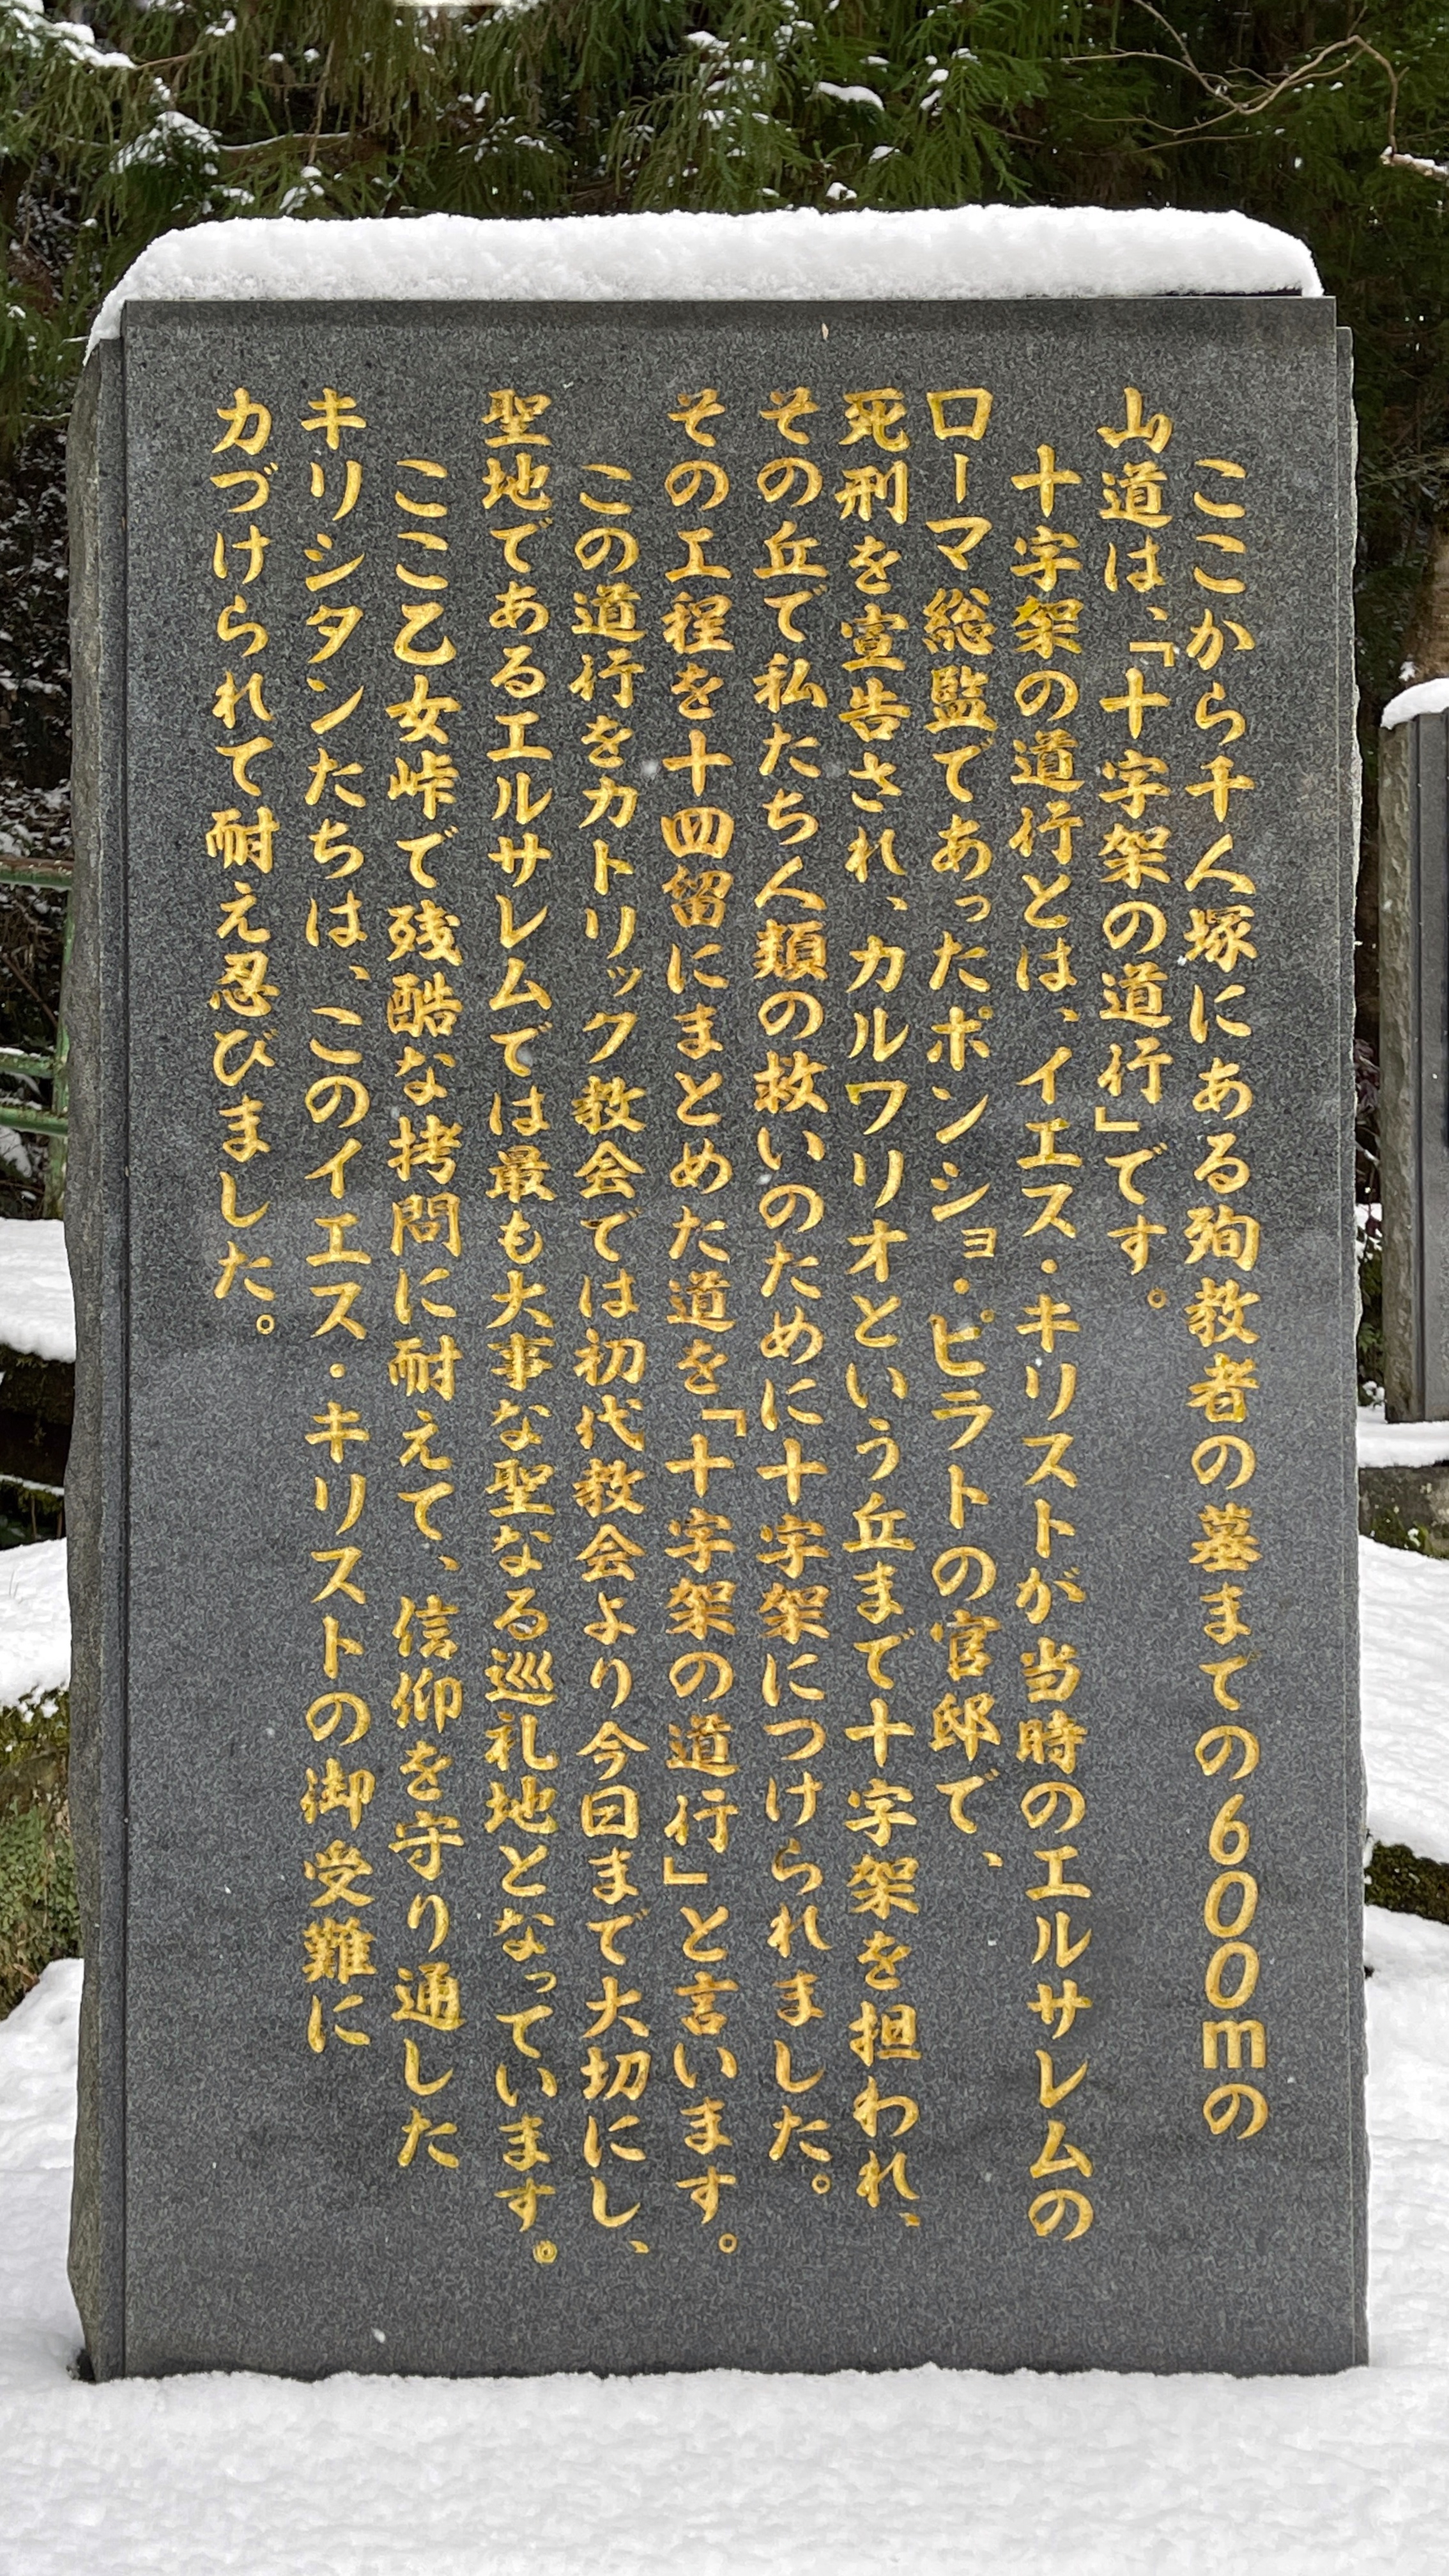 ここから千人塚にある殉教者の墓までの600mの
山道は、「十字架の道行」です。
十字架の道行とは、イエス・キリストが当時のエルサレムの
ローマ総監であったポンショ・ピラトの官邸で、
死刑を宣告され、カルワリオという丘まで十字架を担われ、
その丘で私たち人類の救いのために十字架につけられました。
その工程を十四留にまとめた道を「十字架の道行」と言います。
この道行をカトリック教会では初代教会より今日まで大切にし、
聖地であるエルサレムでは最も大事な聖なる巡礼地となっています。
ここ乙女峠で残酷な拷問に耐えて、信仰を守り通した
キリシタンたちは、このイエス・キリストの御受難に
力づけられて耐え忍びました。